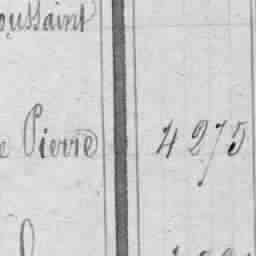 oussaint
e Pierre 4275